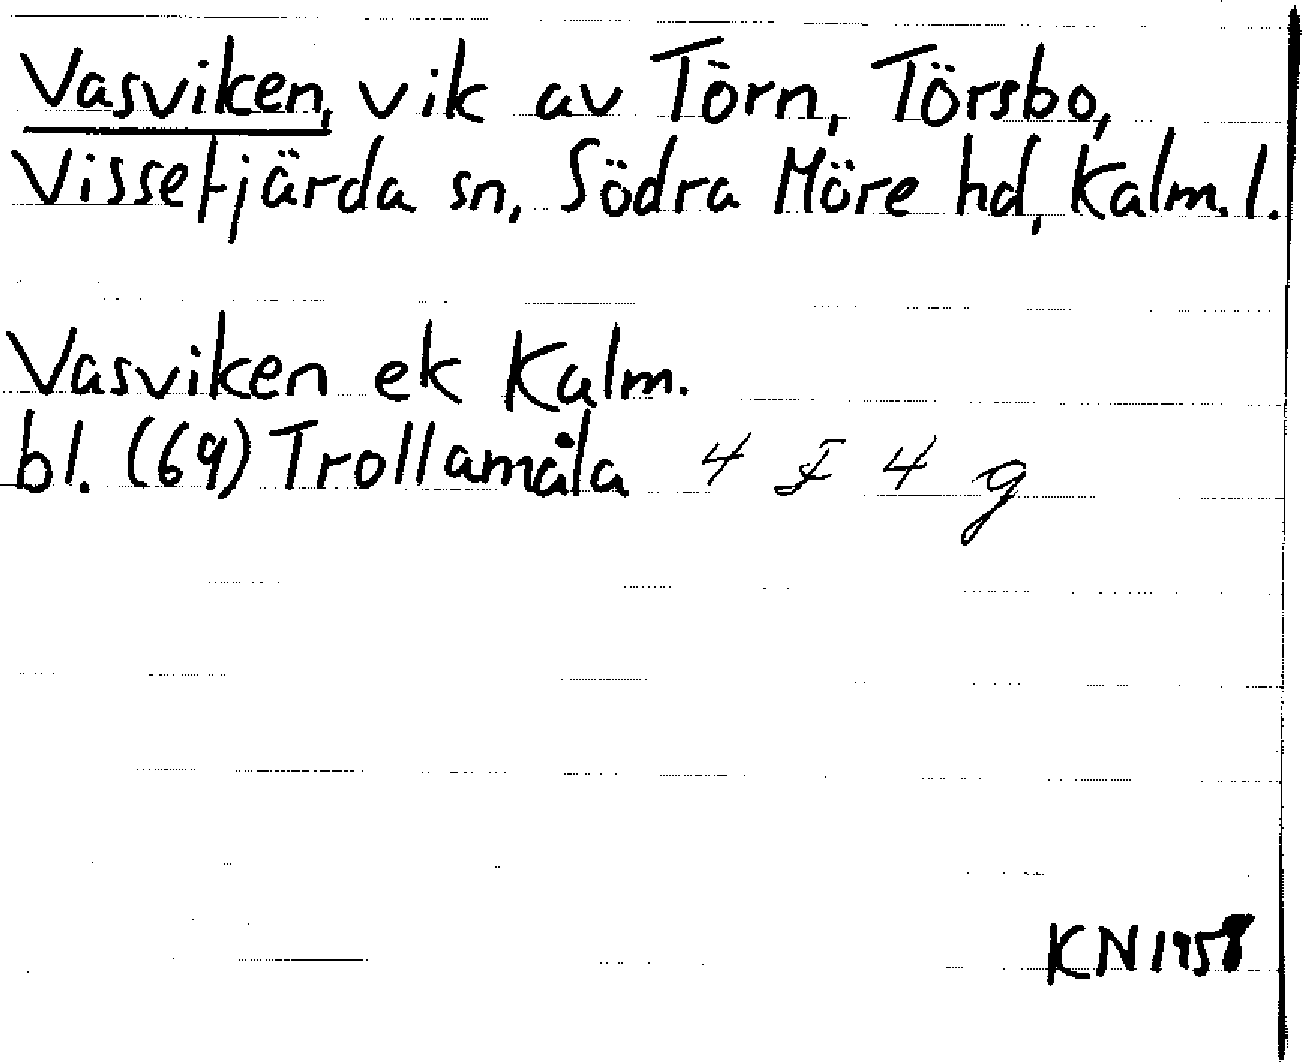 Vasviken, vik av Törn, Törsbo,
Vissefjärda sn, Södra Möre hd, Kalm. l.
Vasviken ek Kalm.
bl. (69) Trollamåla 4 F 4 g
KN 1958